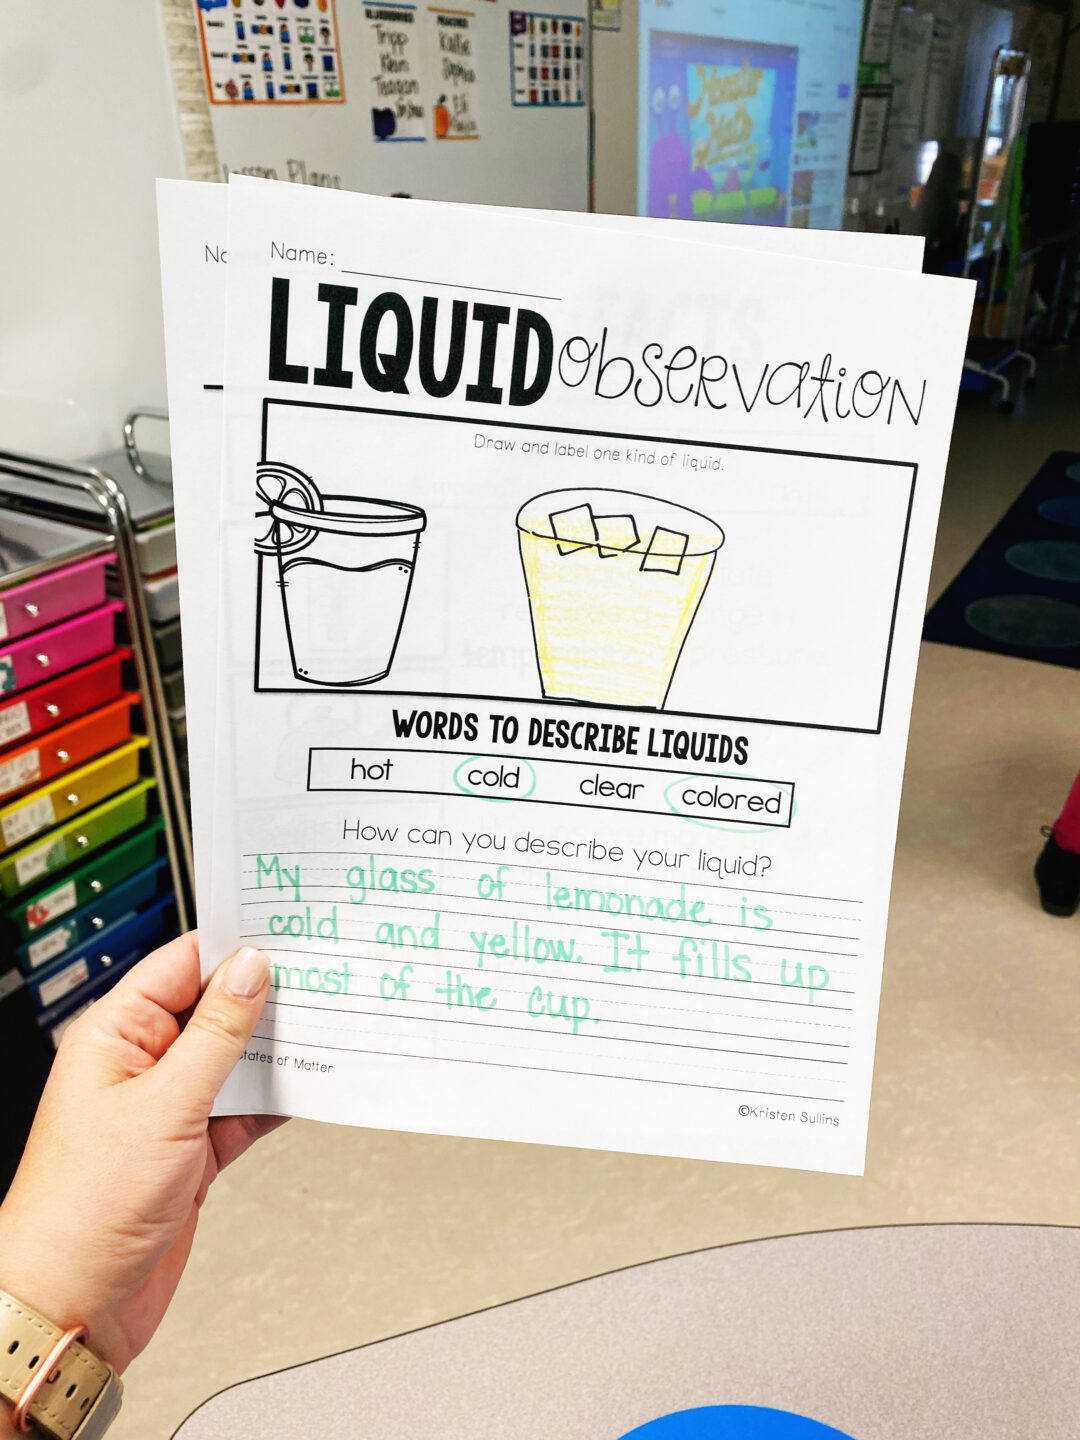 BLUEBERRIES
PEACHES
Tripp
Klein
Teagan
Kallie
Sophia
Eli
Lesson Plans
Monster
Math
No
Name:
LIQUID observation
Draw and label one kind of liquid.
WORDS TO DESCRIBE LIQUIDS
hot cold clear colored
How can you describe your liquid?
My glass of lemonade is
cold and yellow. It fills up
most of the cup.
States of Matter
©Kristen Sullins